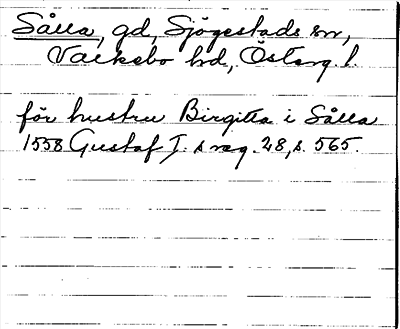 Sålla, gd, Sjögestads sn,
Valkebo hd, Österg. l.
för hustru Birgitta i Sålla
1558 Gustaf I. s reg. 28, s. 565.